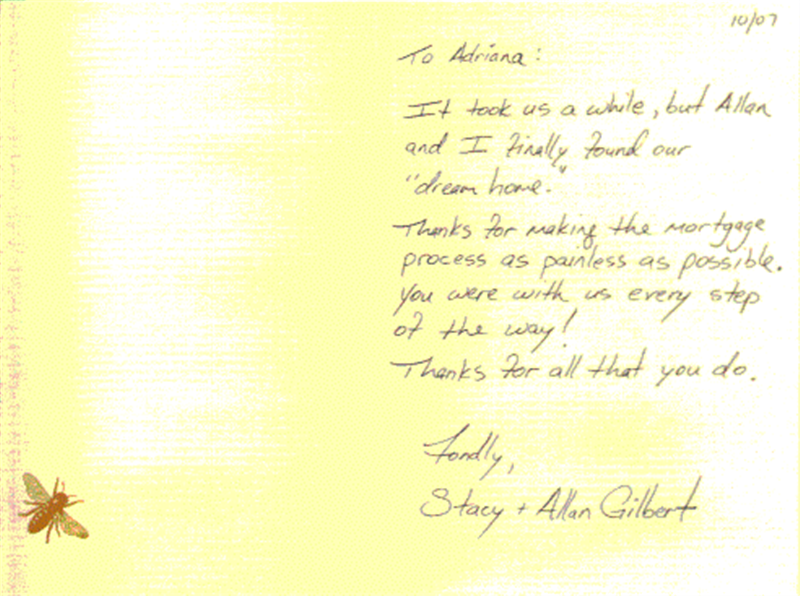 10/07
To Adriana:
It took us a while, but Allan
and I finally found our
"dream home."
Thanks for making the mortgage
process as painless as possible.
You were with us every step
of the way!
Thanks for all that you do.
Fondly,
Stacy + Allan Gilbert